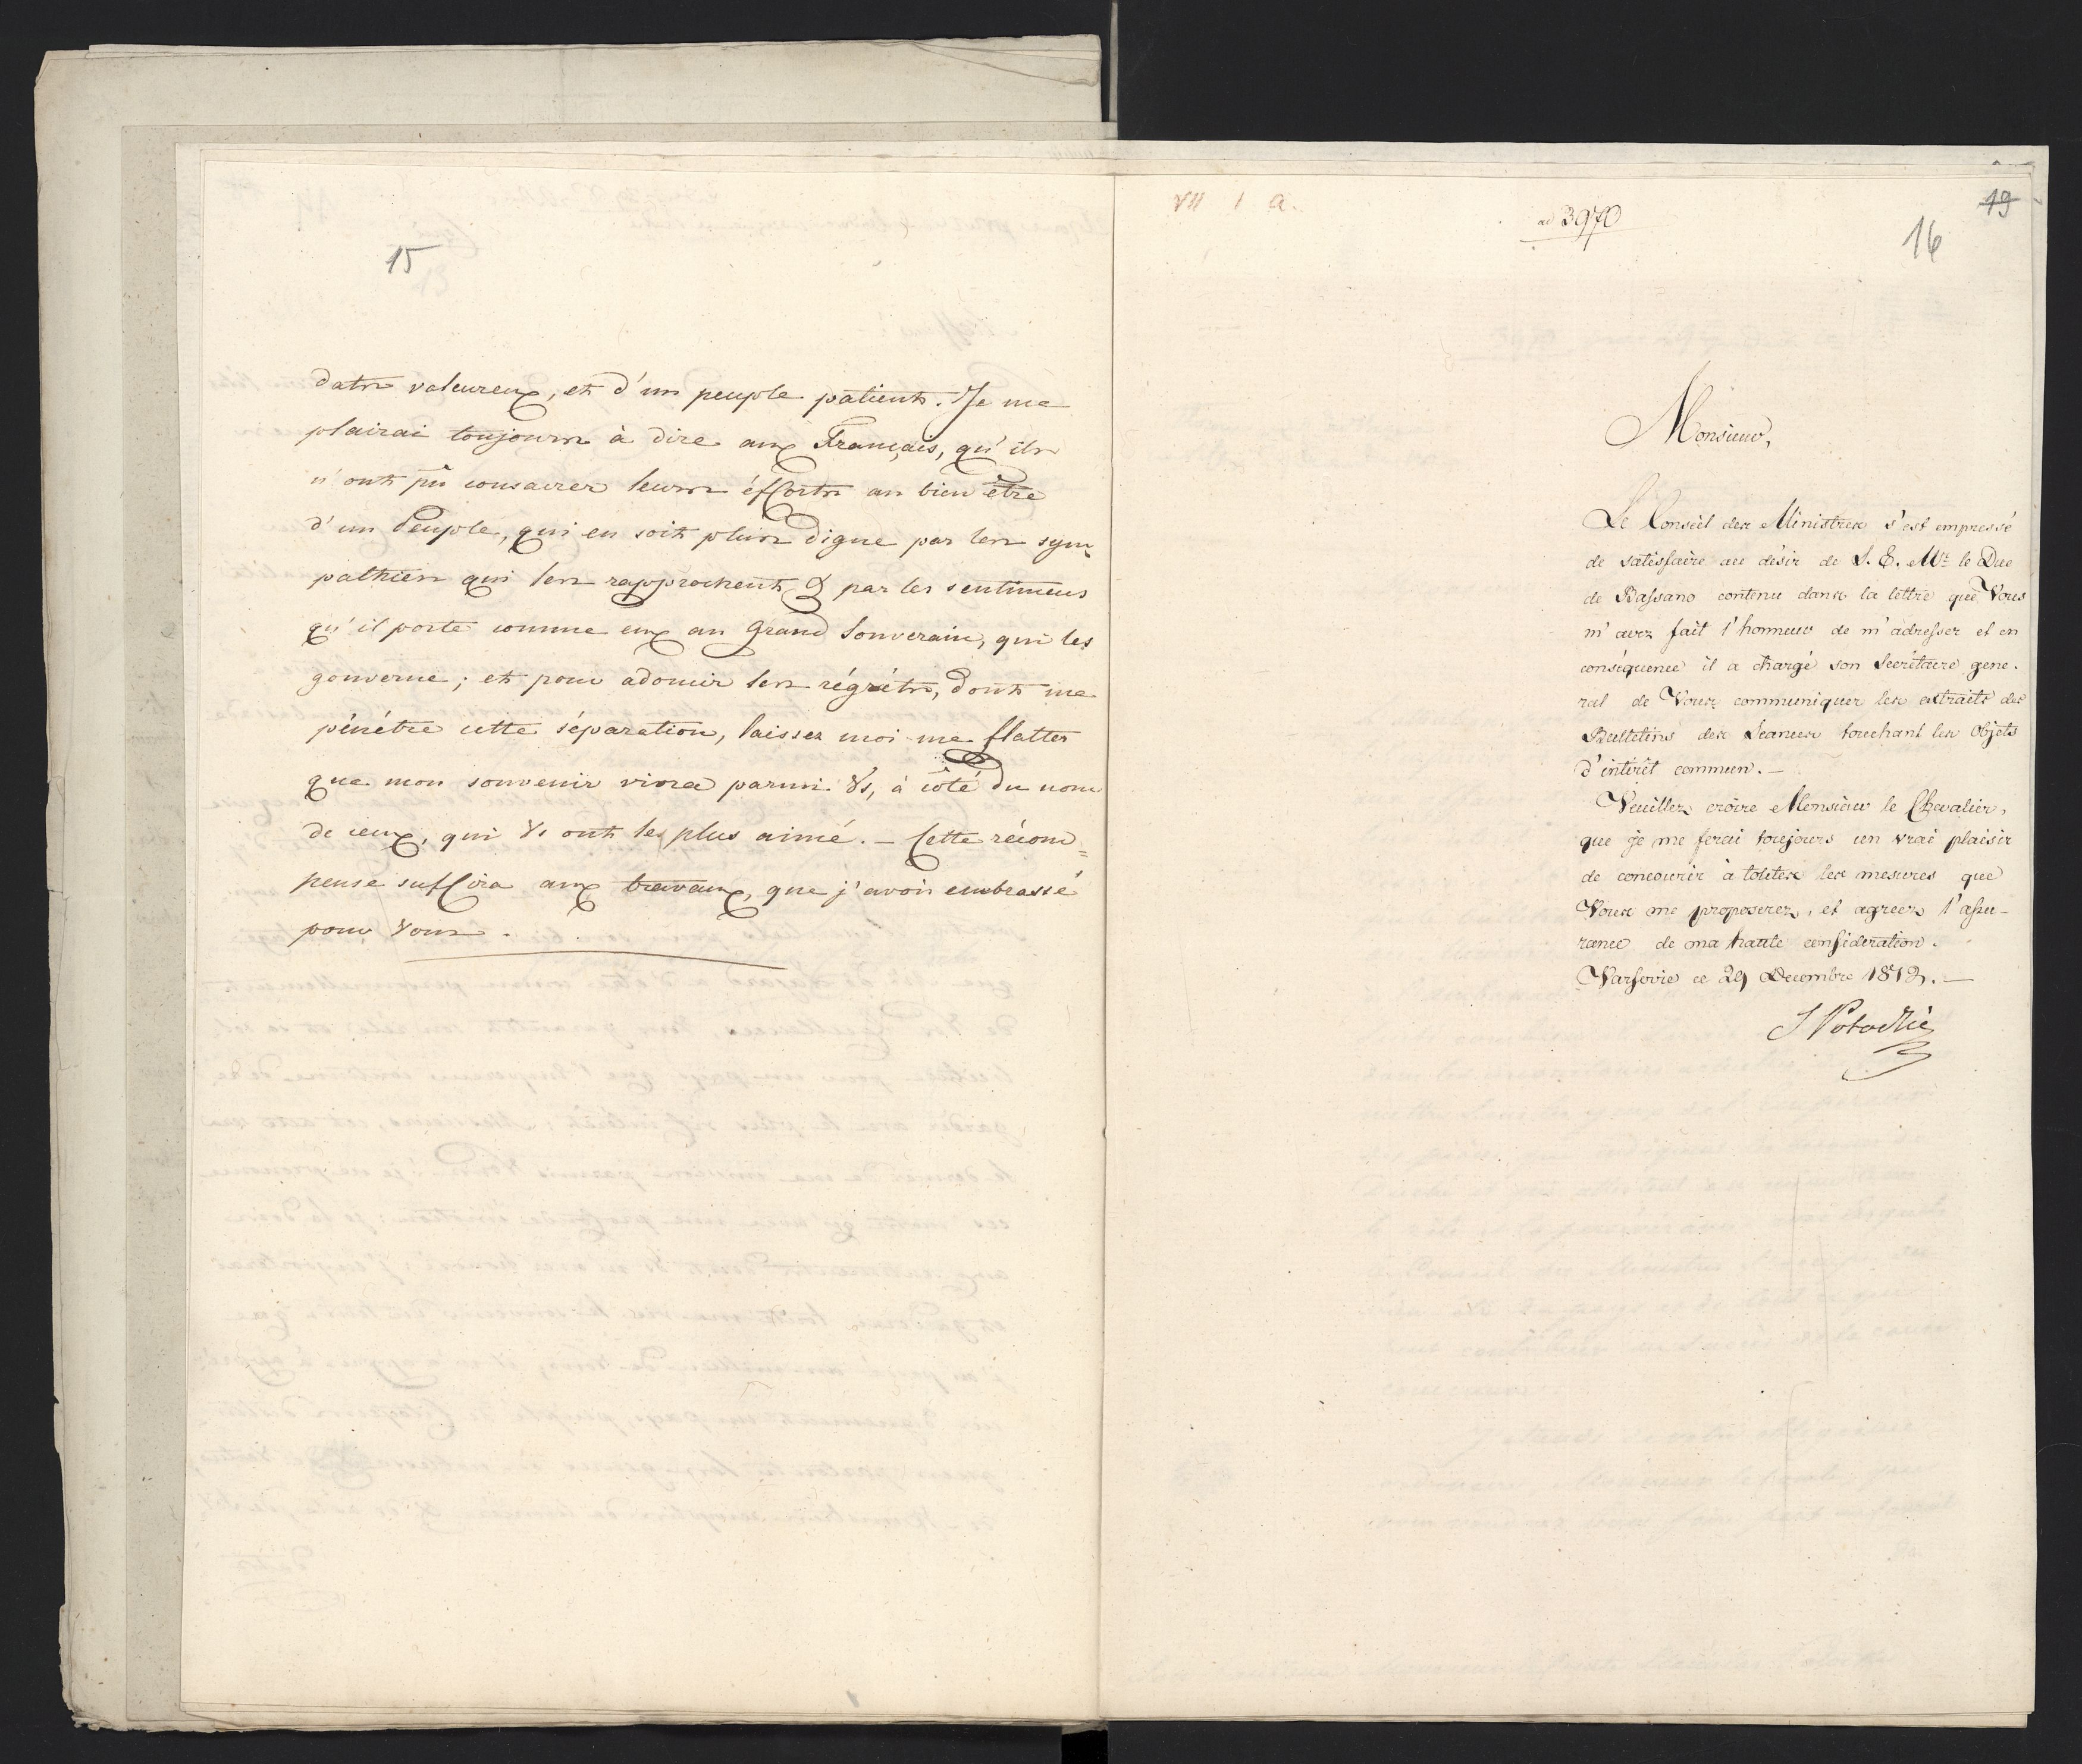 15
dats valeureux, et d'un peuple patient. Je me
plairai toujours à dire aux Français, qu'ils
n'ont pû consacrer leurs éfforts au bien être
d'un Peuple, qui en soit plus digne par les sym
pathies qui les rapprochent & par les sentimens
qu'il porte comme eux au Grand Souverain, qui les
gouverne; et pour adoucir les régréts, dont me
pénétre cette séparation, laissez moi me flatter
que mon souvenir vivra parmi Vs, à côté du nom
de ceux, qui Vs ont les plus aimé. – Cette récom=
pense suffira aux travaux, que j'avois embrassé
pour Vous.
VII 1 a.
ad 3970
19
16
Monsieur,
Le Conseil des Ministres s'est empressé
de satisfaire au désir de S. E. Mr. le Duc
de Bassano contenu dans la lettre que Vous
m'avez fait l'honneur de m'adresser et en
conséquence il a chargé son Secrétaire gene-
ral de Vous communiquer les extraits des
Bulletins des Seances touchant les Objets
d'intérêt commun. –
Veuillez croire Monsieur le Chevalier,
que je me ferai toujours un vrai plaisir
de concourir à toutes les mesures que
Vous me proposerez, et agreez l'assu-
rance de ma haute consideration.
Varsovie ce 29 Decembre 1812. –
S Potocki